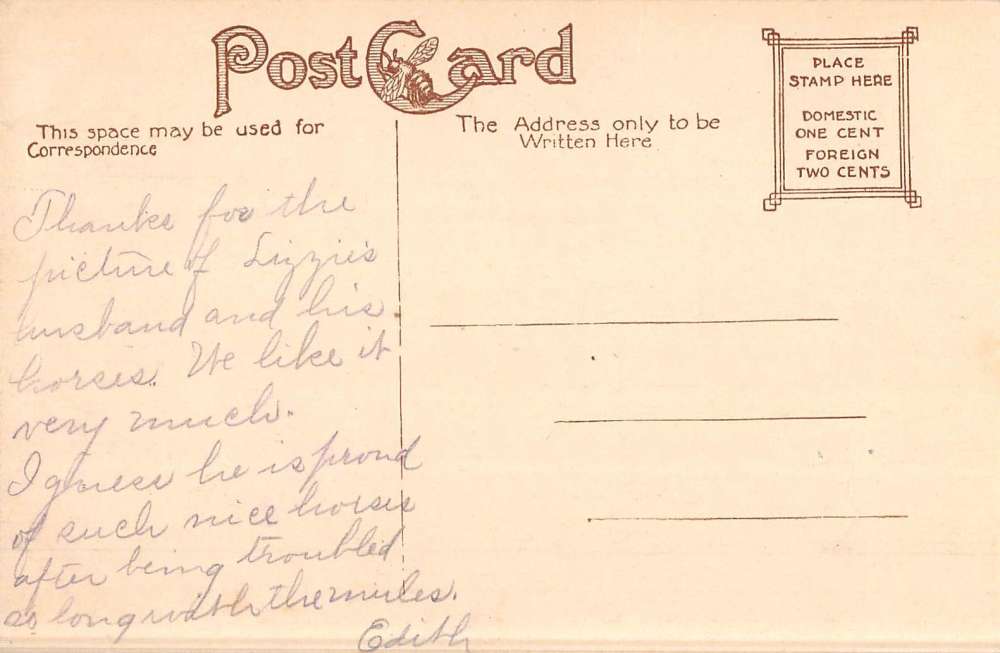 Post Card
This space may be used for
Correspondence
The Address only to be
Written Here
PLACE
STAMP HERE
DOMESTIC
ONE CENT
FOREIGN
TWO CENTS
Thanks for the
picture of Lizzie's
husband and his
horses. We like it
very much.
I guess he is proud
of such nice horses
after being troubled
so long with the mules.
Edith